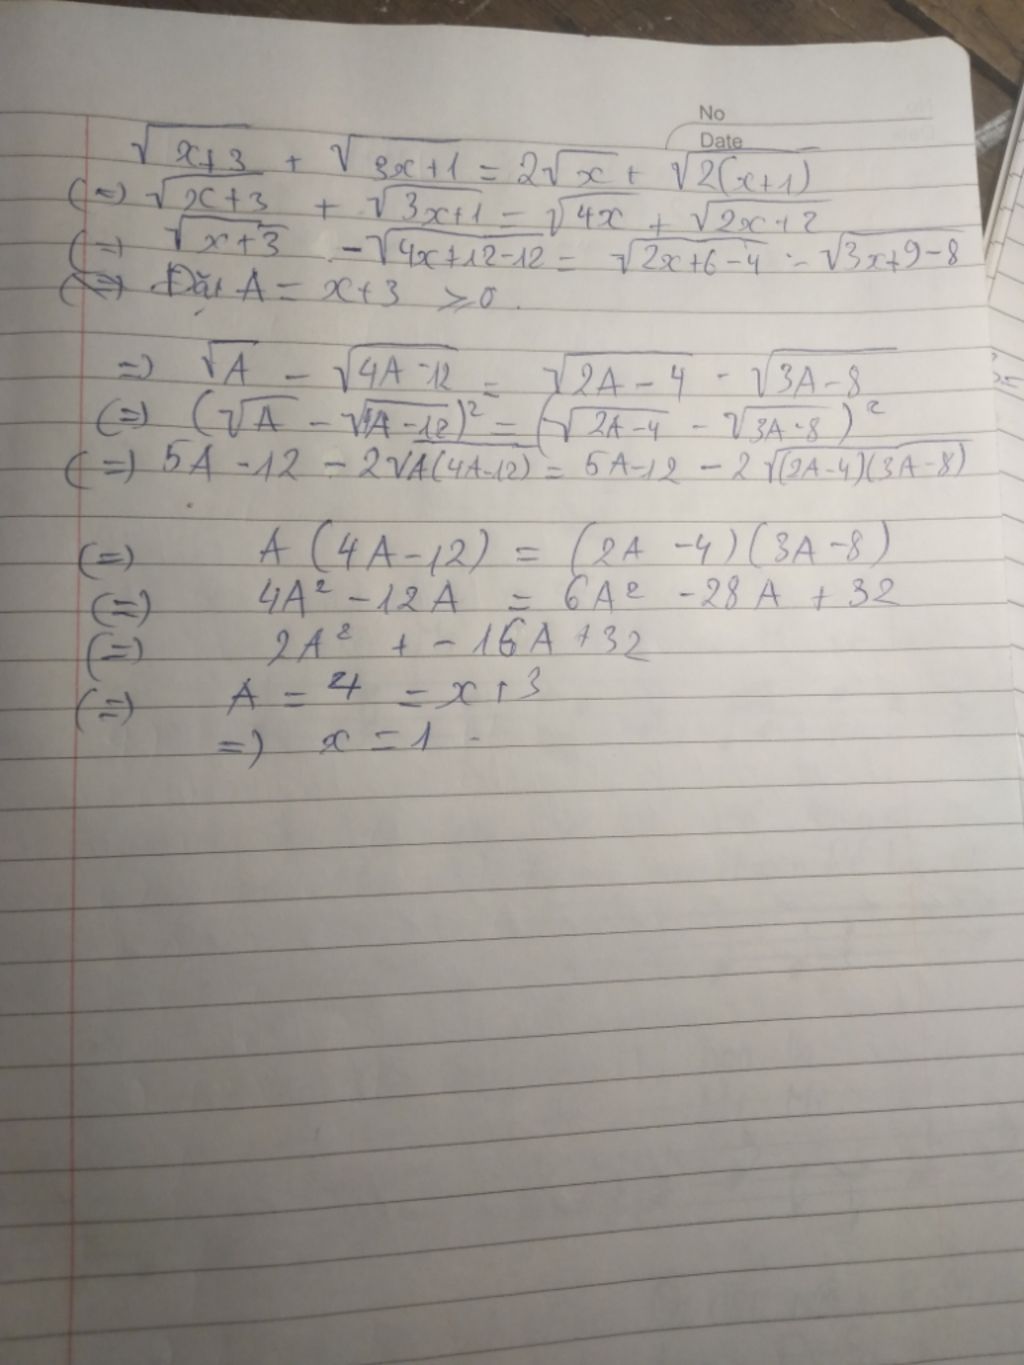 No
Date
√(x+3) + √(3x+1) = 2√x + √(2(x+1))
(=) √(x+3) + √(3x+1) = √(4x) + √(2x+2)
(=) √(x+3) - √(4x+12-12) = √(2x+6-4) - √(3x+9-8)
(=) Đặt A = x+3 ≥0.
=) √A - √(4A-12) = √(2A-4) - √(3A-8)
(=) (√A - √(4A-12))² = (√(2A-4) - √(3A-8))²
(=) 5A -12 - 2√(A(4A-12)) = 5A-12 - 2√((2A-4)(3A-8))
(=) A (4A-12) = (2A -4)(3A-8)
(=) 4A² -12A = 6A² -28A + 32
(=) 2A² + - 16A +32
(=) A = 4 = x+3
=) x = 1 -